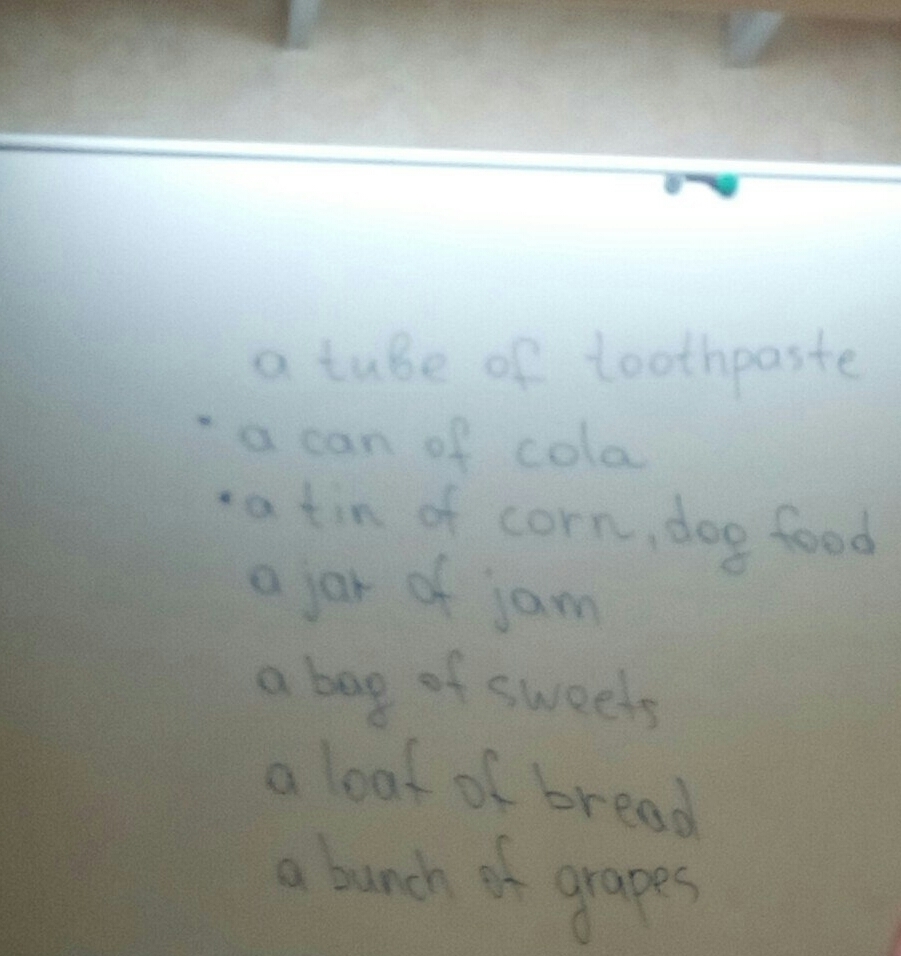 a tube of toothpaste
• a can of cola
• a tin of corn, dog food
a jar of jam
a bag of sweets
a loaf of bread
a bunch of grapes